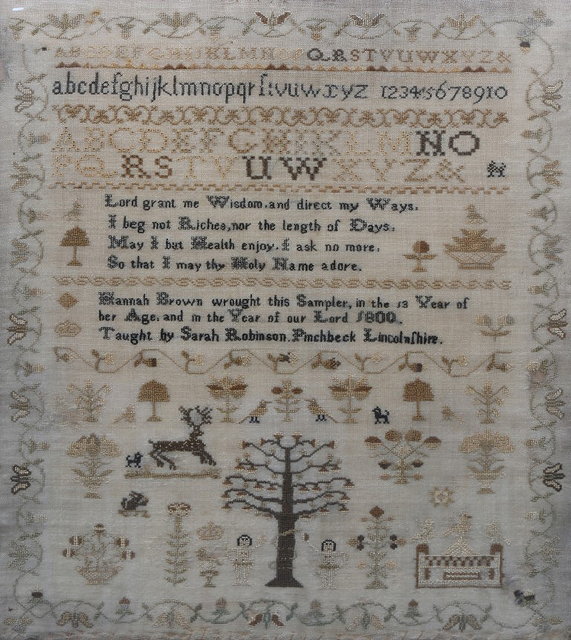 ABCDEFGHIJKLMNOPQRSTVUWXYZ&
abcdefghijklmnopqrſtvuwxyz 12345678910
ABCDEFGHIKLMNO
PQRSTVUWXYZ&
Lord grant me Wisdom, and direct my Ways.
I beg not Riches, nor the length of Days.
May I but Health enjoy. I ask no more.
So that I may thy Holy Name adore.
Hannah Brown wrought this Sampler, in the 13 Year of
her Age, and in the Year of our Lord 1800.
Taught by Sarah Robinson. Pinchbeck Lincolnſhire.